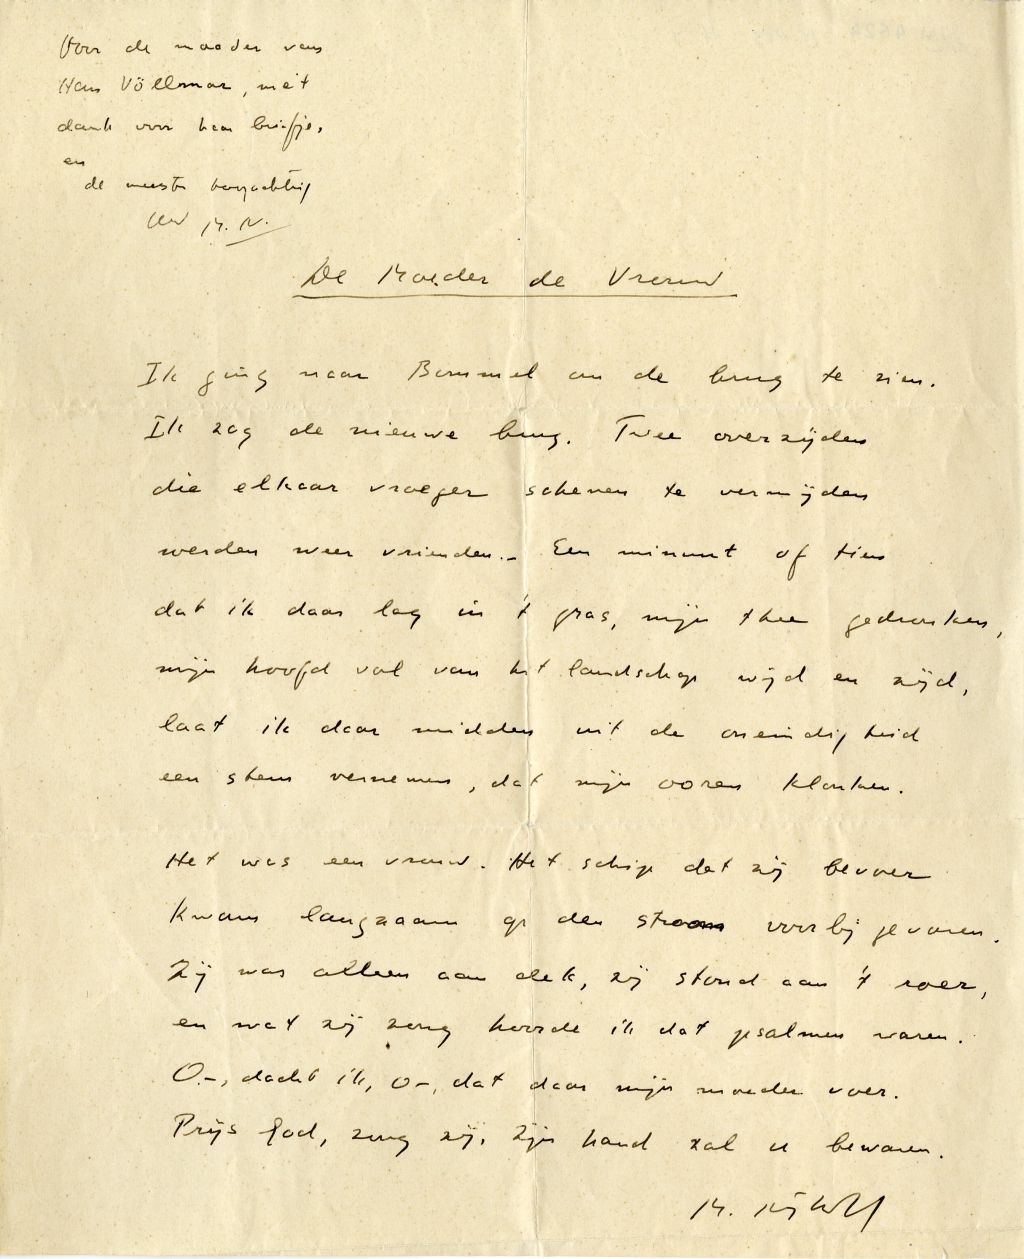 Voor de moeder van
Hans Völlmar, met
dank voor haar briefje,
en
de meeste hoogachting
M. N.
De Moeder de Vrouw
Ik ging naar Bommel om de brug te zien.
Ik zag de nieuwe brug. Twee overzijden
die elkaar vroeger schenen te vermijden
werden weer vrienden. – Een minuut of tien
dat ik daar lag in 't gras, mijn thee gedronken,
mijn hoofd vol van het landschap wijd en zijd,
laat ik daar midden uit de oneindigheid
een stem vernemen, dat mijn ooren klonken.
Het was een vrouw. Het schip dat zij bevoer
kwam langzaam op den stroom voorbij gevaren.
Zij was alleen aan dek, zij stond aan 't roer,
en wat zij zong hoorde ik dat psalmen waren.
O –, dacht ik, o –, dat daar mijn moeder voer.
Prijs God, zong zij, Zijn hand zal u bewaren.
M. Nijhoff